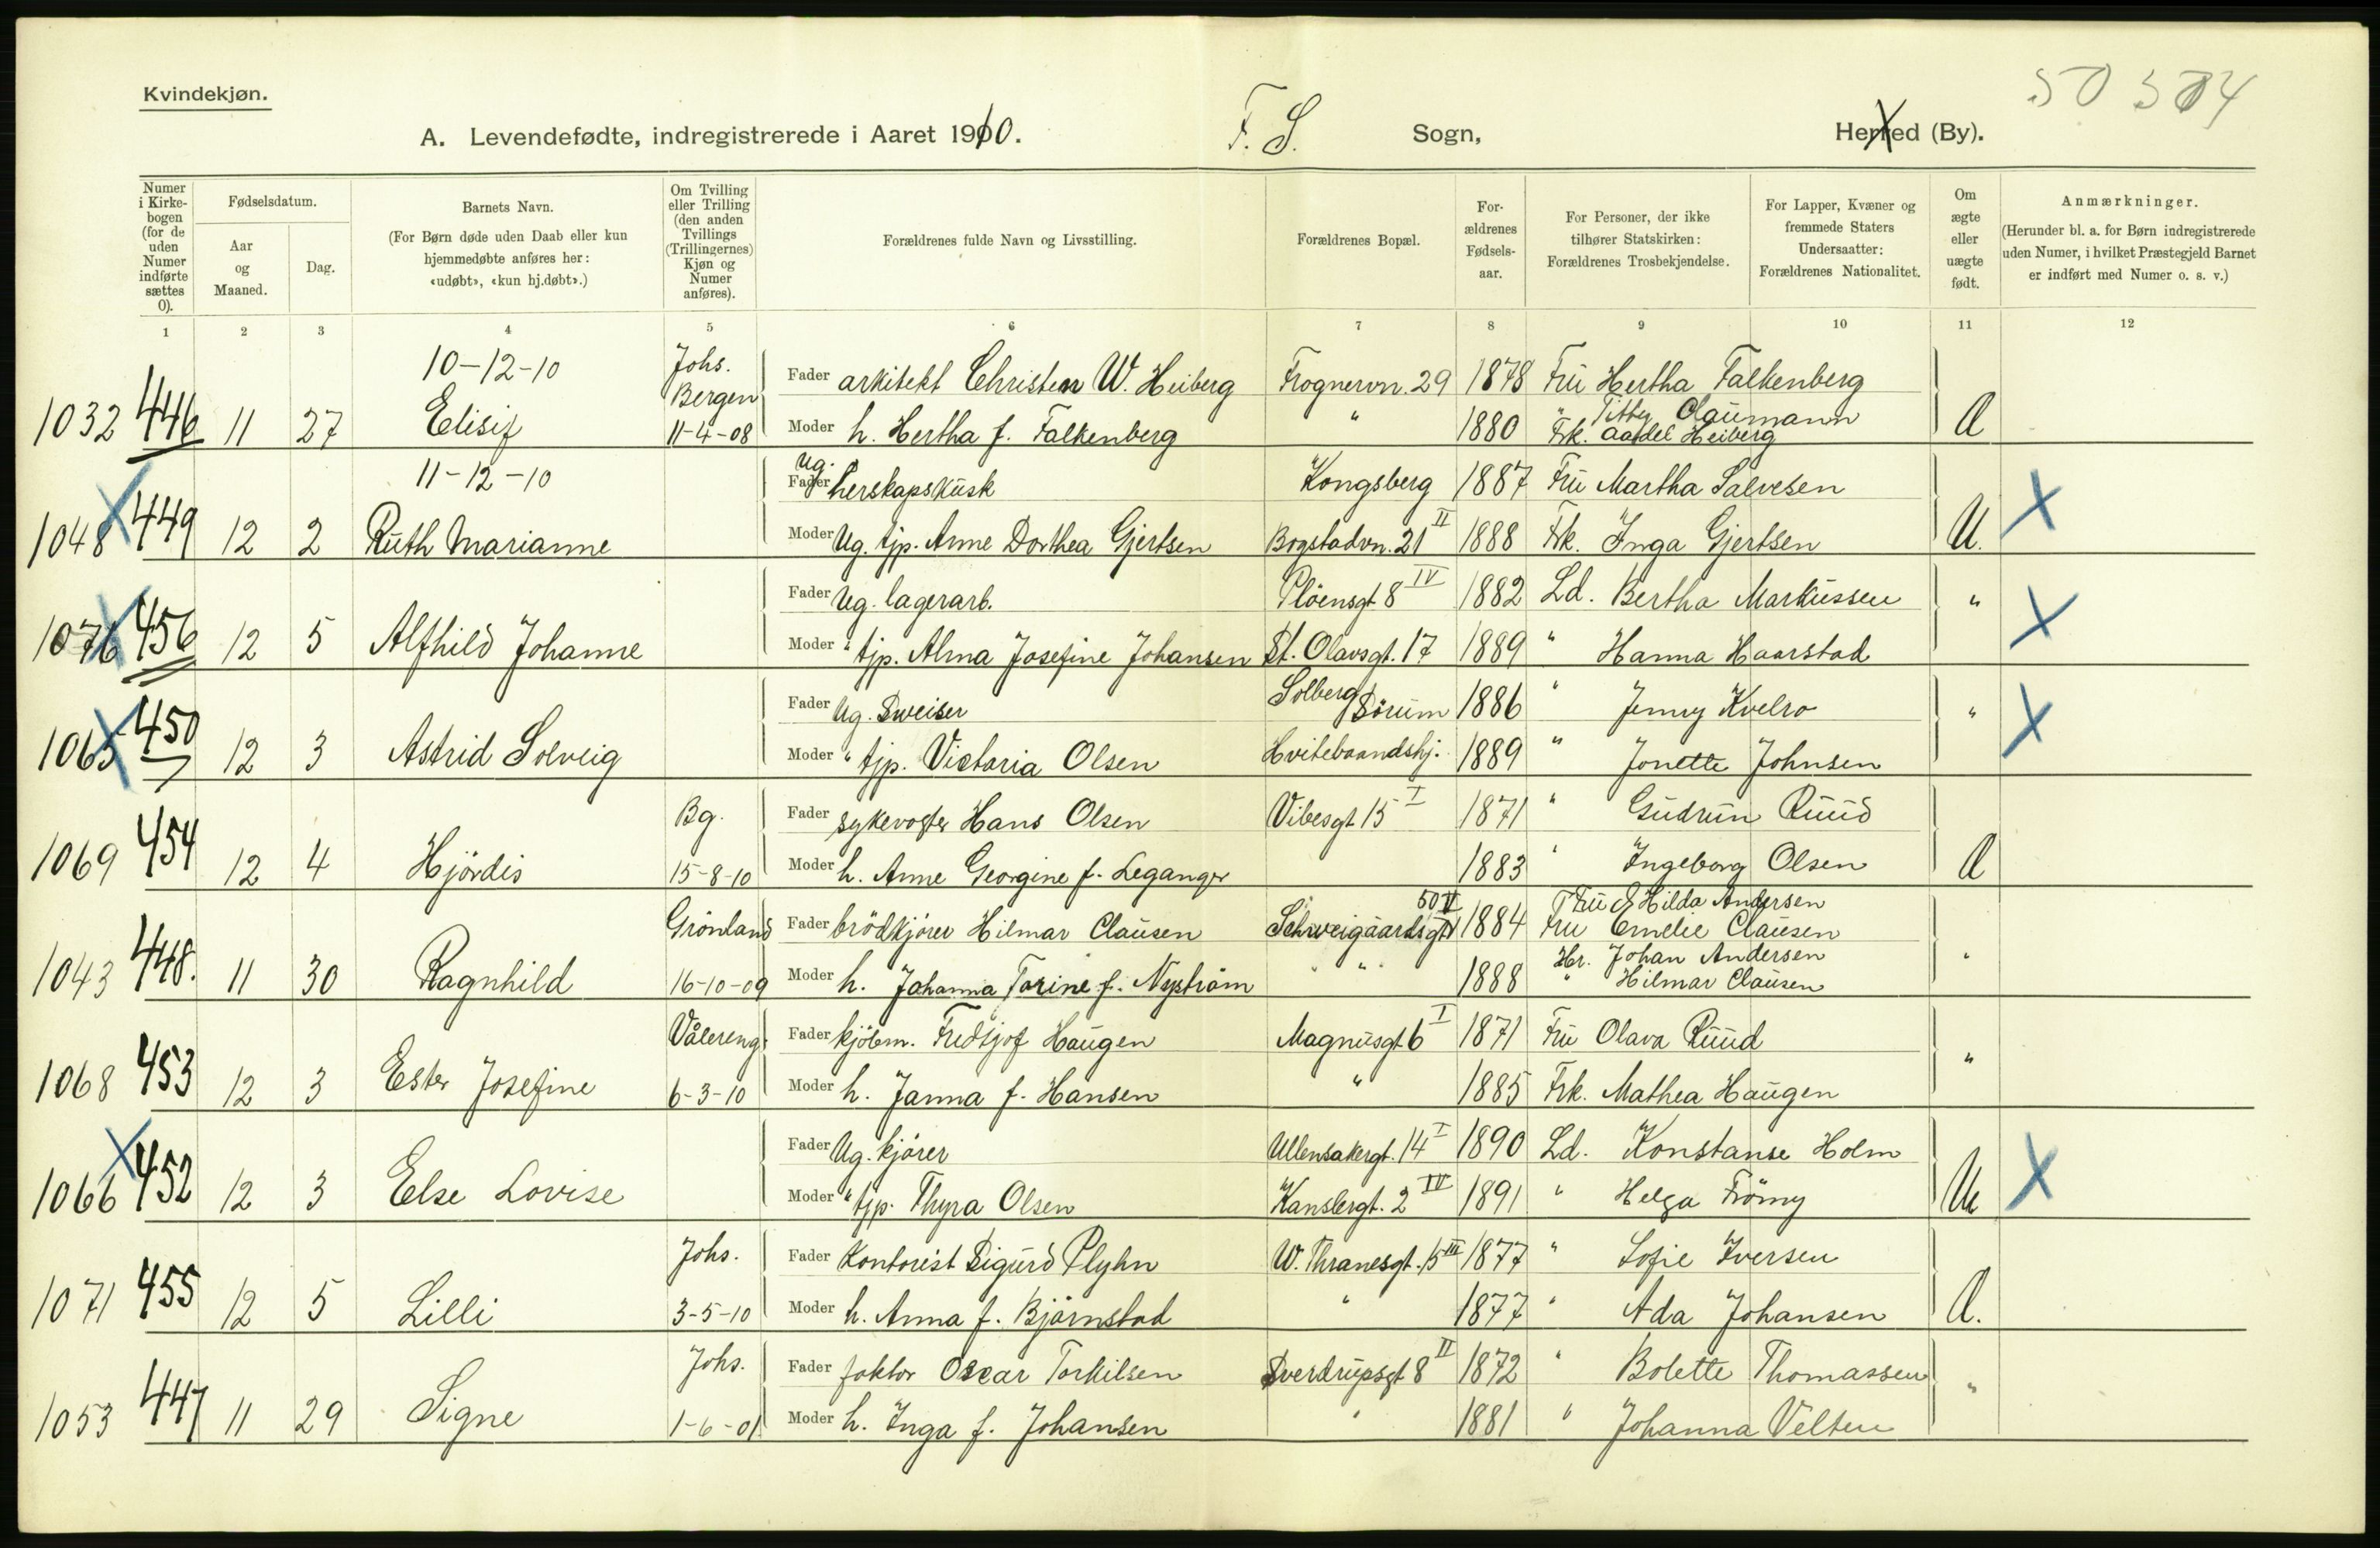 50 304
Kvindekjøn.
A. Levendefødte, indregistrerede i Aaret 1910. F. S. Sogn, Herred (By).
Numer i Kirkebogen (for de uden Numer indførte sættes 0).
Fødselsdatum.
Aar og Maaned.
Dag.
Barnets Navn.
(For Børn døde uden Daab eller kun hjemmedøbte anføres her: «udøbt», «kun hj.døbt».)
Om Tvilling eller Trilling (den anden Tvillings (Trillingernes) Kjøn og Numer anføres).
Forældrenes fulde Navn og Livsstilling.
Forældrenes Bopæl.
Forældrenes Fødselsaar.
For Personer, der ikke tilhører Statskirken: Forældrenes Trosbekjendelse.
For Lapper, Kvæner og fremmede Staters Undersaatter: Forældrenes Nationalitet.
Om ægte eller uægte født.
Anmærkninger.
(Herunder bl. a. for Børn indregistrerede uden Numer, i hvilket Præstegjeld Barnet er indført med Numer o. s. v.)
1 2 3 4 5 6 7 8 9 10 11 12
10-12-10 Johs. Bergen Fader arkitekt Christen W. Heiberg Frognervn. 29 1878 Fru Hertha Falkenberg
1032 446 11 27 Elisif 11-4-08 Moder h. Hertha f. Falkenberg " 1880 " Titty Claumann Æ
Frk. Aadel Heiberg
11-12-10 Fader Ug. herskapskusk Kongsberg 1887 Fru Martha Salvesen
1048 X 449 12 2 Ruth Marianne Moder Ug. tjp. Anne Dorthea Gjertsen Bogstadvn. 21 II 1888 Frk. Inga Gjertsen U. X
Fader Ug. lagerarb. Plöensgt. 8 IV 1882 Ld. Bertha Markussen
1076 X 456 12 5 Alfhild Johanne Moder " tjp. Alma Josefine Johansen St. Olavsgt. 17 1889 " Hanna Haarstad " X
Fader Ug. Sweiser Solberg Sörum 1886 " Jenny Kvelro
1065 X 450 12 3 Astrid Solveig Moder " tjp. Victoria Olsen Hvitebaandshj. 1889 " Jonette Johnsen " X
Bg. Fader sykevogter Hans Olsen Vibesgt 15 I 1871 " Gudrun Ruud
1069 454 12 4 Hjördis 15-8-10 Moder h. Anne Georgine f. Leganger 1883 " Ingeborg Olsen Æ
Fru Hilda Andersen
Grönland Fader brödkjörer Hilmar Clausen Schweigaardsgt 50 V 1884 Fru Emelie Clausen
Hr. Johan Andersen
1043 448. 11 30 Ragnhild 16-10-09 Moder h. Johanna Torine f. Nyström " " 1888 " Hilmar Clausen "
Vålereng. Fader kjöbm. Fredtjof Haugen Magnusgt 6 I 1871 Fru Olava Ruud
1068 453 12 3 Ester Josefine 6-3-10 Moder h. Janna f. Hansen " 1885 Frk. Mathea Haugen "
Fader Ug. kjörer Ullensakergt. 14 I 1890 Ld. Konstanse Holm
1066 X 452 12 3 Else Lovise Moder " tjp. Thyra Olsen Kanslergt. 2 IV 1891 " Helga Frömy U X
Johs. Fader Kontorist Sigurd Plyhn W. Thranesgt. 15 III 1877 " Sofie Iversen
1071 455 12 5 Lilli 3-5-10 Moder h. Anna f. Björnstad " 1877 " Ada Johansen Æ.
Johs. Fader faktor Oscar Torkilsen Sverdrupsgt 8 II 1872 " Bolette Thomassen
1053 447 11 29 Signe 1-6-01 Moder h. Inga f. Johansen " 1881 " Johanna Velten "